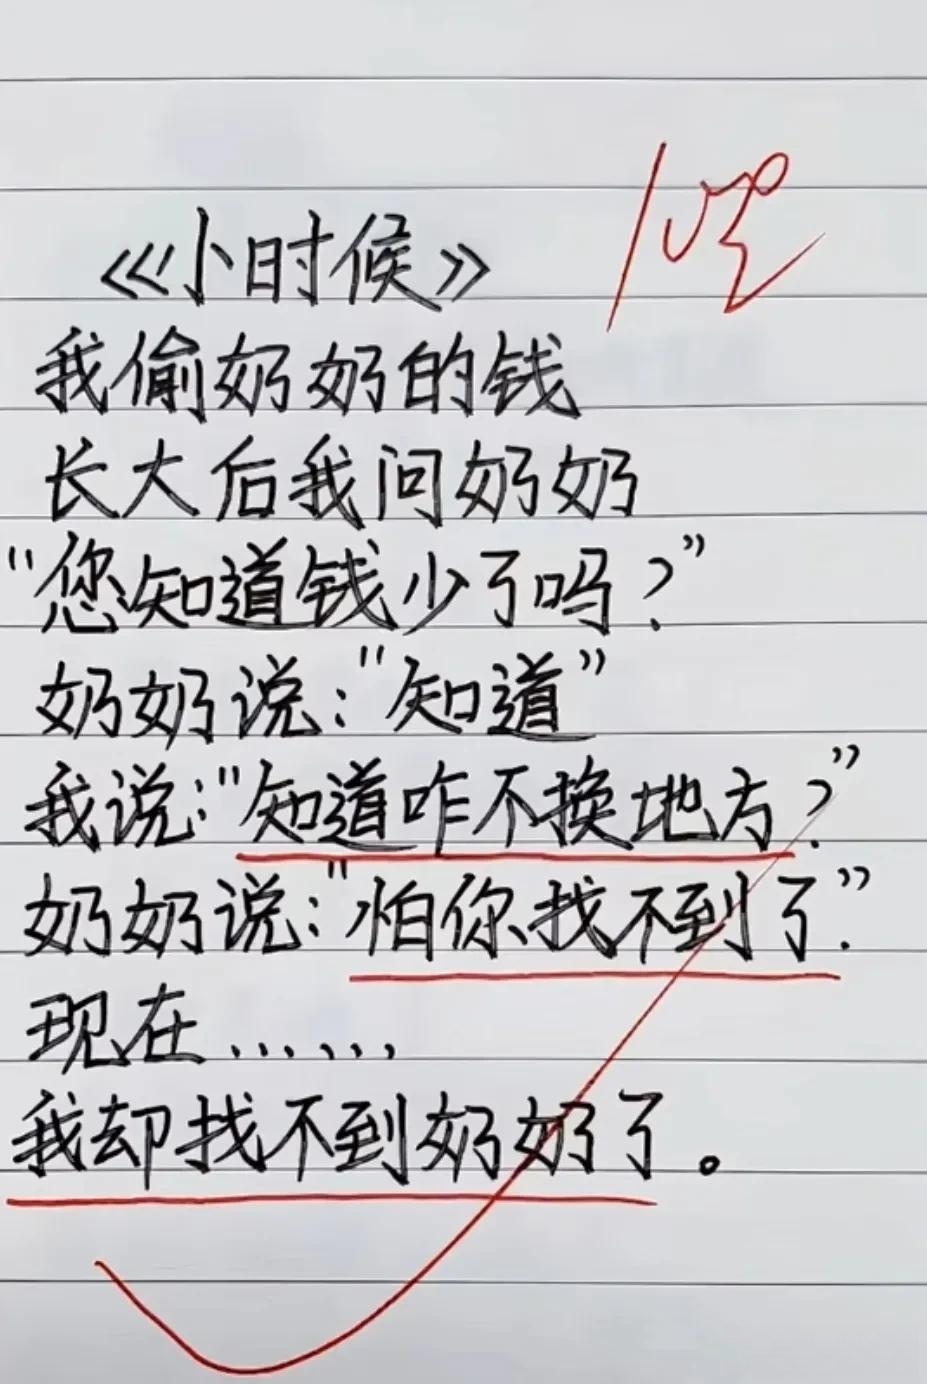 《小时候》
我偷奶奶的钱
长大后我问奶奶
“您知道钱少了吗?”
奶奶说:“知道”
我说:“知道咋不换地方?”
奶奶说:“怕你找不到了.”
现在......
我却找不到奶奶了。